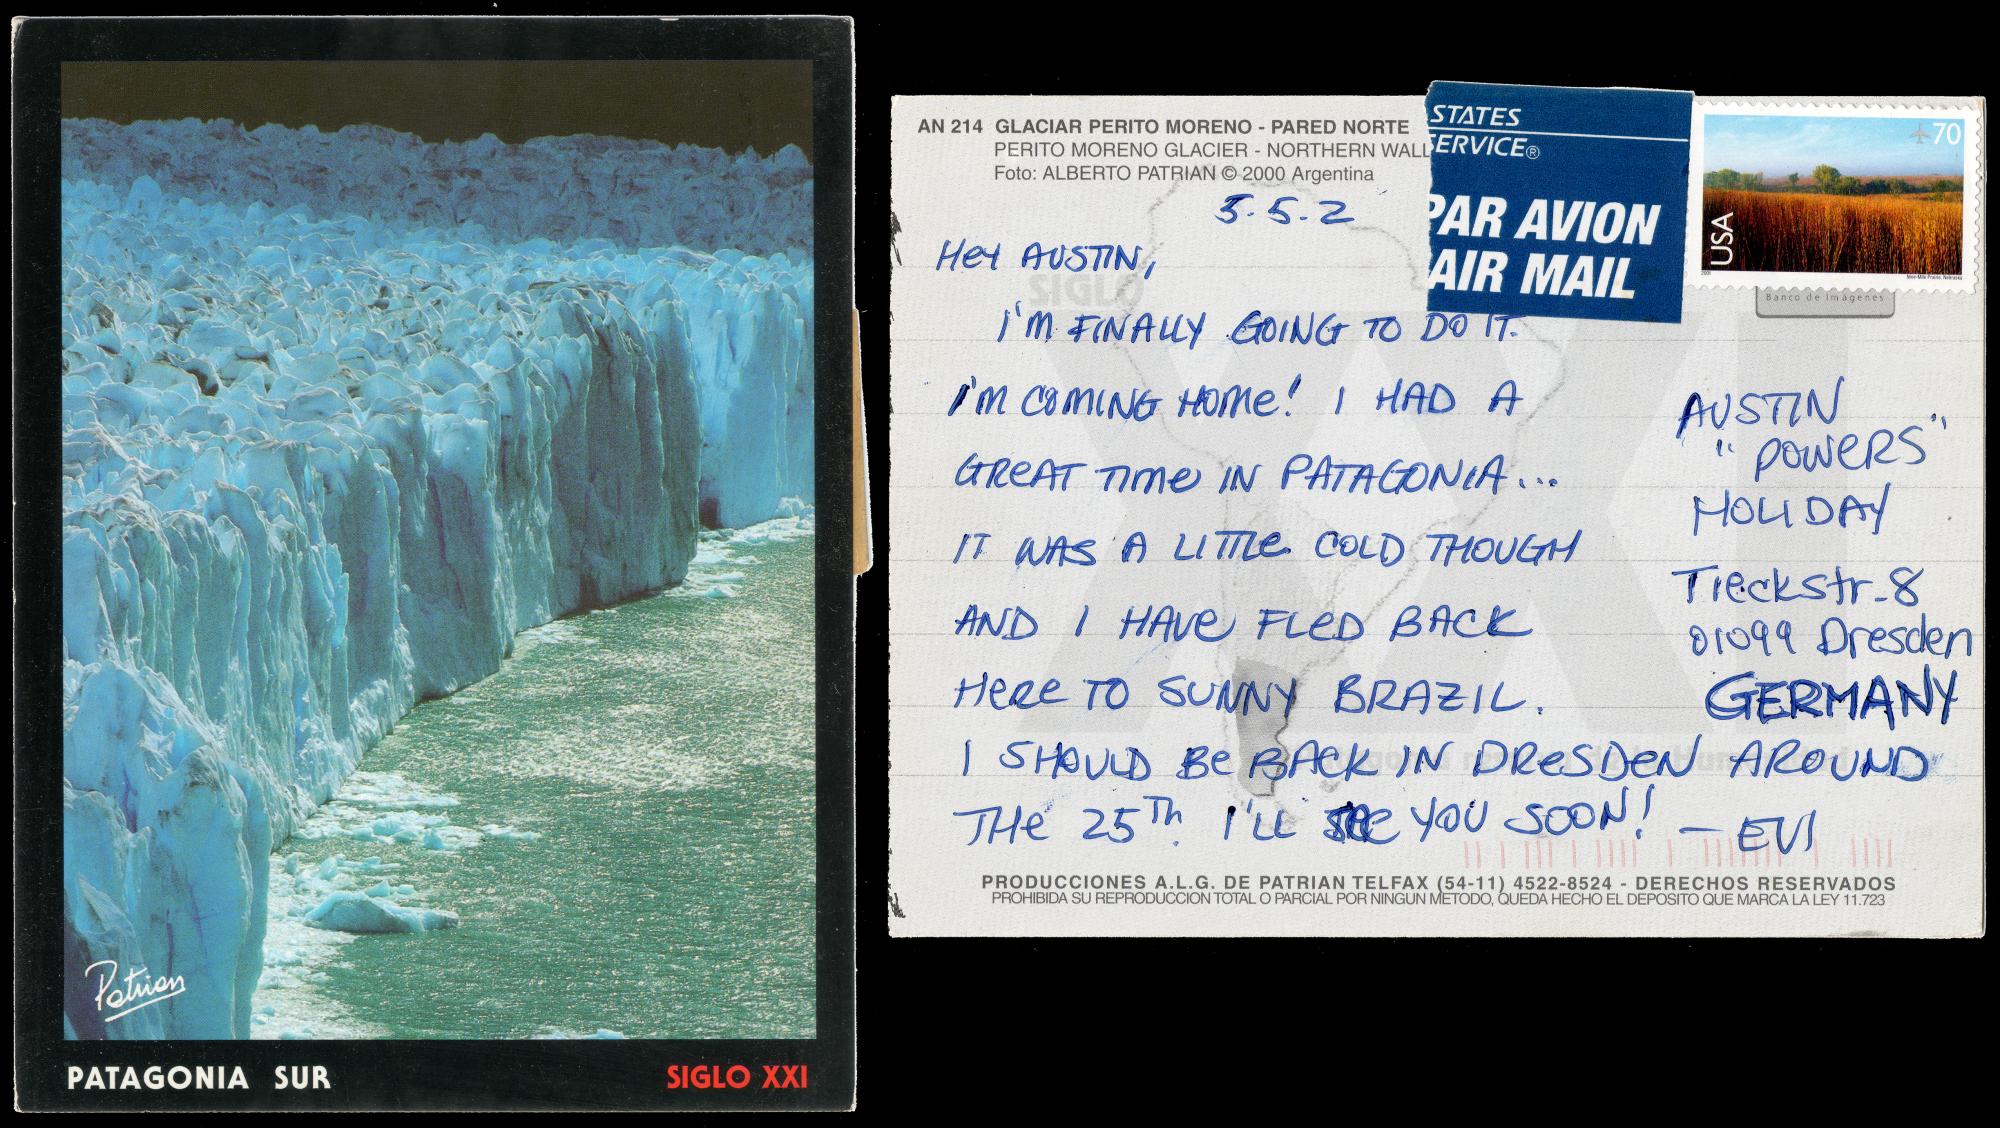 Patrian
PATAGONIA SUR
SIGLO XXI
AN 214 GLACIAR PERITO MORENO - PARED NORTE
PERITO MORENO GLACIER - NORTHERN WALL
Foto: ALBERTO PATRIAN © 2000 Argentina
STATES
SERVICE®
PAR AVION
AIR MAIL
70
USA
2001
Nine-Mile Prairie, Nebraska
Banco de Imágenes
SIGLO
XXI
5.5.2
Hey AUSTIN,
I'M FINALLY GOING TO DO IT.
I'M COMING HOME! I HAD A
GREAT TIME IN PATAGONIA...
IT WAS A LITTLE COLD THOUGH
AND I HAVE FLED BACK
HERE TO SUNNY BRAZIL.
I SHOULD BE BACK IN DRESDEN AROUND
THE 25TH. I'LL SEE YOU SOON! — EVI
AUSTIN
"POWERS"
HOLIDAY
Tieckstr. 8
01099 Dresden
GERMANY
PRODUCCIONES A.L.G. DE PATRIAN TELFAX (54-11) 4522-8524 - DERECHOS RESERVADOS
PROHIBIDA SU REPRODUCCION TOTAL O PARCIAL POR NINGUN METODO, QUEDA HECHO EL DEPOSITO QUE MARCA LA LEY 11.723